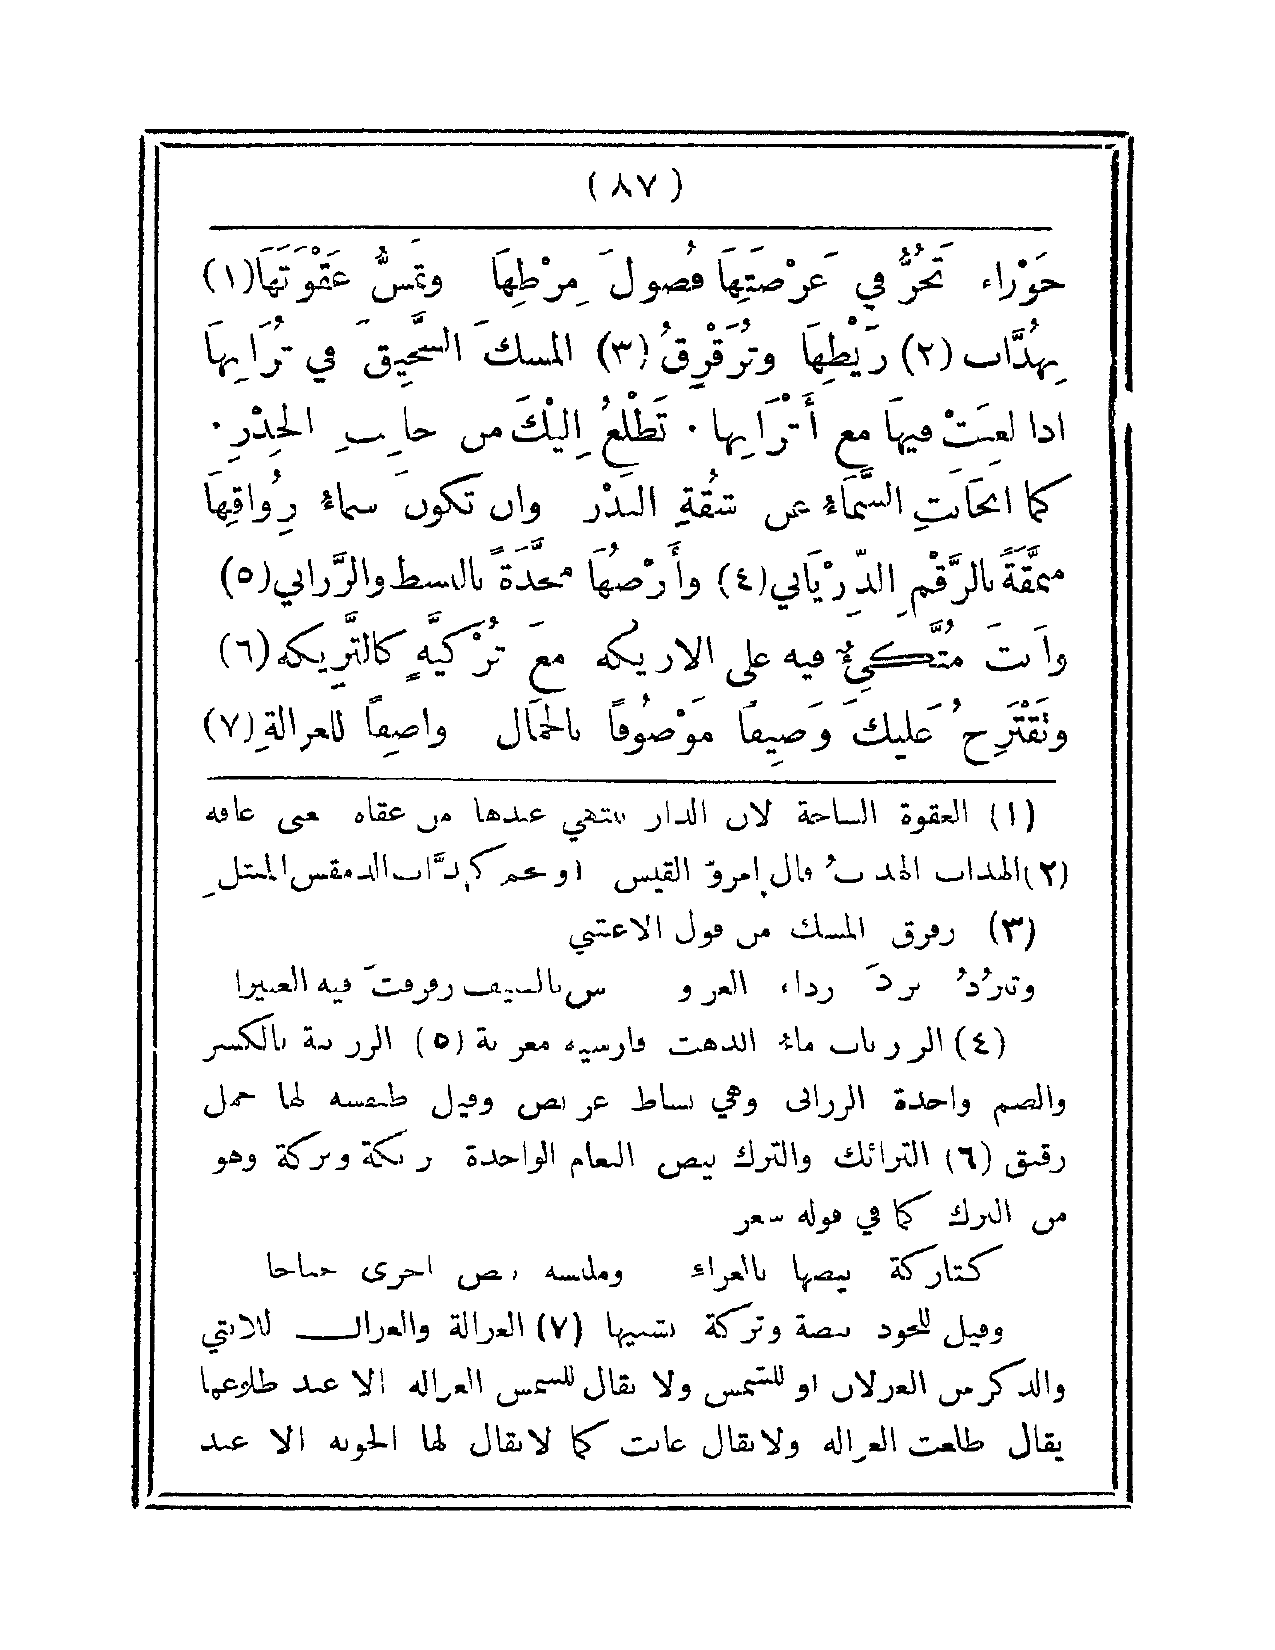 ( ٨٧ )
حَوْراء تَجُرُّ في عَرْصَتِها فُضولَ مِرْطِها وتمَسُّ عَقْوَتَها(١)
بِهُدَّاب (٢) رَيْطِها وتُرَقْرِقُ (٣) المسكَ السَّحيقَ في تُرَابِها
اذا لعِبَتْ فيها مع أَتْرَابِها ٠ تَطْلُعُ اليْكَ من جانب الخِدْرِ ٠
كما انجابَتِ السَّماءُ عن شقةِ البَدْر وان تكونَ سماءُ رِواقِها
منمَّقَةً بالرَّقْمِ الدِّرْيَابي(٤) وأَرْضُها منجَّدَةً بالبسط والزَّرابي(٥)
وأَنتَ مُتَّكِئٌ فيه على الاريكة معَ تُرْكيَّةٍ كالتَّرِيكة(٦)
وتَقْتَرِحُ عَليكَ وَصيفاً مَوْصُوفاً بالجَمال واصِفاً للغزالةِ(٧)
(١) العقوة الساحة لان الدار ينتهي عندها من عقاه بمعنى عاقه
(٢)الهداب الهدب قال امرؤ القيس او شحم كهدَّاب الدمقس المفتل
(٣) رقرق المسك من قول الاعشى
وتبرُدُ بردَ رداء العرو س بالصيف رقرقتَ فيه العبيرا
(٤) الزرياب ماء الذهب فارسية معربة (٥) الزربية بالكسر
والضم واحدة الزرابي وهي بساط عريض وقيل طنفسة لها خمل
رقيق (٦) الترائك والترك بيض النعام الواحدة تريكة وتركة وهو
من الترك كما في قوله شعر
كتاركة بيضها بالعراء وملبسة بيض اخرى جناحا
وقيل للخود بيضة وتركة تشبيها (٧) الغزالة والغزال للانثى
والذكر من الغزلان او للشمس ولا يقال للشمس الغزالة الا عند طلوعها
يقال طلعت الغزالة ولا يقال غابت كما لا يقال لها الجونة الا عند